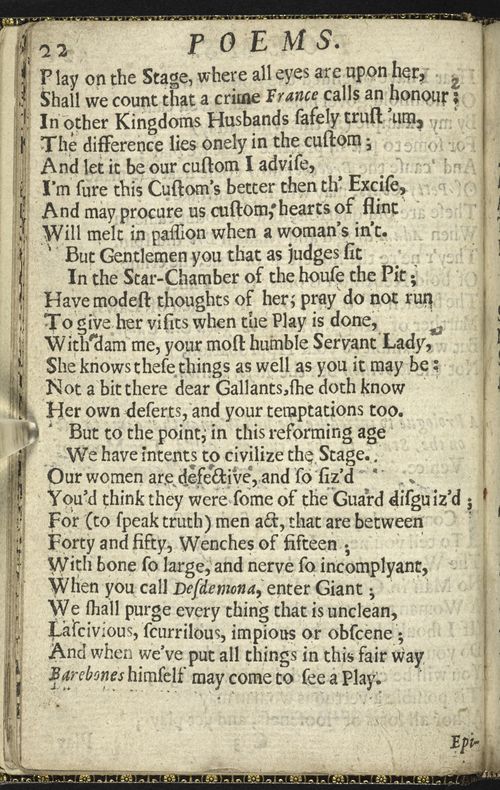 22 POEMS.
Play on the Stage, where all eyes are upon her,
Shall we count that a crime France calls an honour ?
In other Kingdoms Husbands ſafely truſt 'um,
The difference lies onely in the cuſtom ;
And let it be our cuſtom I adviſe,
I'm ſure this Cuſtom's better then th' Exciſe,
And may procure us cuſtom, hearts of flint
Will melt in paſſion when a woman's in't.
But Gentlemen you that as judges ſit
In the Star-Chamber of the houſe the Pit ;
Have modeſt thoughts of her; pray do not run
To give her viſits when the Play is done,
With dam me, your moſt humble Servant Lady,
She knows theſe things as well as you it may be :
Not a bit there dear Gallants, ſhe doth know
Her own deſerts, and your temptations too.
But to the point, in this reforming age
We have intents to civilize the Stage.
Our women are defective, and ſo ſiz'd
You'd think they were ſome of the Guard diſguiz'd ;
For (to ſpeak truth) men act, that are between
Forty and fifty, Wenches of fifteen ;
With bone ſo large, and nerve ſo incomplyant,
When you call Deſdemona, enter Giant ;
We ſhall purge every thing that is unclean,
Laſcivious, ſcurrilous, impious or obſcene ;
And when we've put all things in this fair way
Barebones himſelf may come to ſee a Play.
Epi-